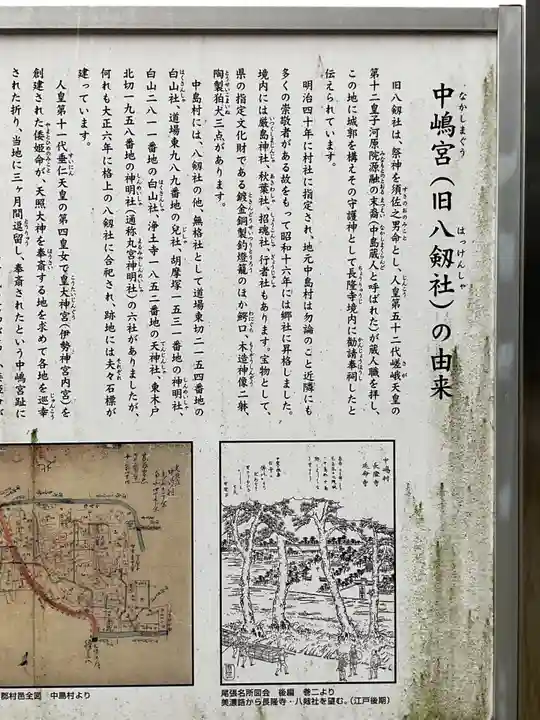 中嶋宮（旧八剱社）の由来
旧八剱社は、祭神を須佐之男命とし、人皇第五十二代嵯峨天皇の
第十二皇子河原院源融の末裔（中島蔵人と呼ばれた）が蔵人職を拝し、
この地に城郭を構えその守護神として長隆寺境内に勧請奉祠したと
伝えられています。
明治四十年に村社に指定され、地元中島村は勿論のこと近隣にも
多くの崇敬者がある故をもって昭和十六年には郷社に昇格しました。
境内には厳島神社、秋葉社、招魂社、行者社もあります。宝物として、
県の指定文化財である鍍金鋼製釣燈籠のほか鰐口、木造神像二躰、
陶製狛犬三点があります。
中島村には、八剱社の他、無格社として道場東切二一五四番地の
白山社、道場東九八九番地の兒社、胡摩塚一五三一番地の神明社、
白山二八一一番地の白山社、浄土寺一八五二番地の天神社、東木戸
北切一九五八番地の神明社（通称丸宮神明社）の六社がありましたが、
何れも大正六年に格上の八剱社に合祀され、跡地には夫々石標が
建っています。
人皇第十一代垂仁天皇の第四皇女で皇大神宮（伊勢神宮内宮）を
創建された倭姫命が、天照大神を奉斎する地を求めて各地を巡幸
された折り、当地に三ヶ月間逗留し、奉斎されたという中嶋宮趾に
中嶋村
長隆寺
延命寺
郡村邑全図　中島村より
尾張名所図会　後編　巻二より
美濃路から長隆寺・八剱社を望む。（江戸後期）